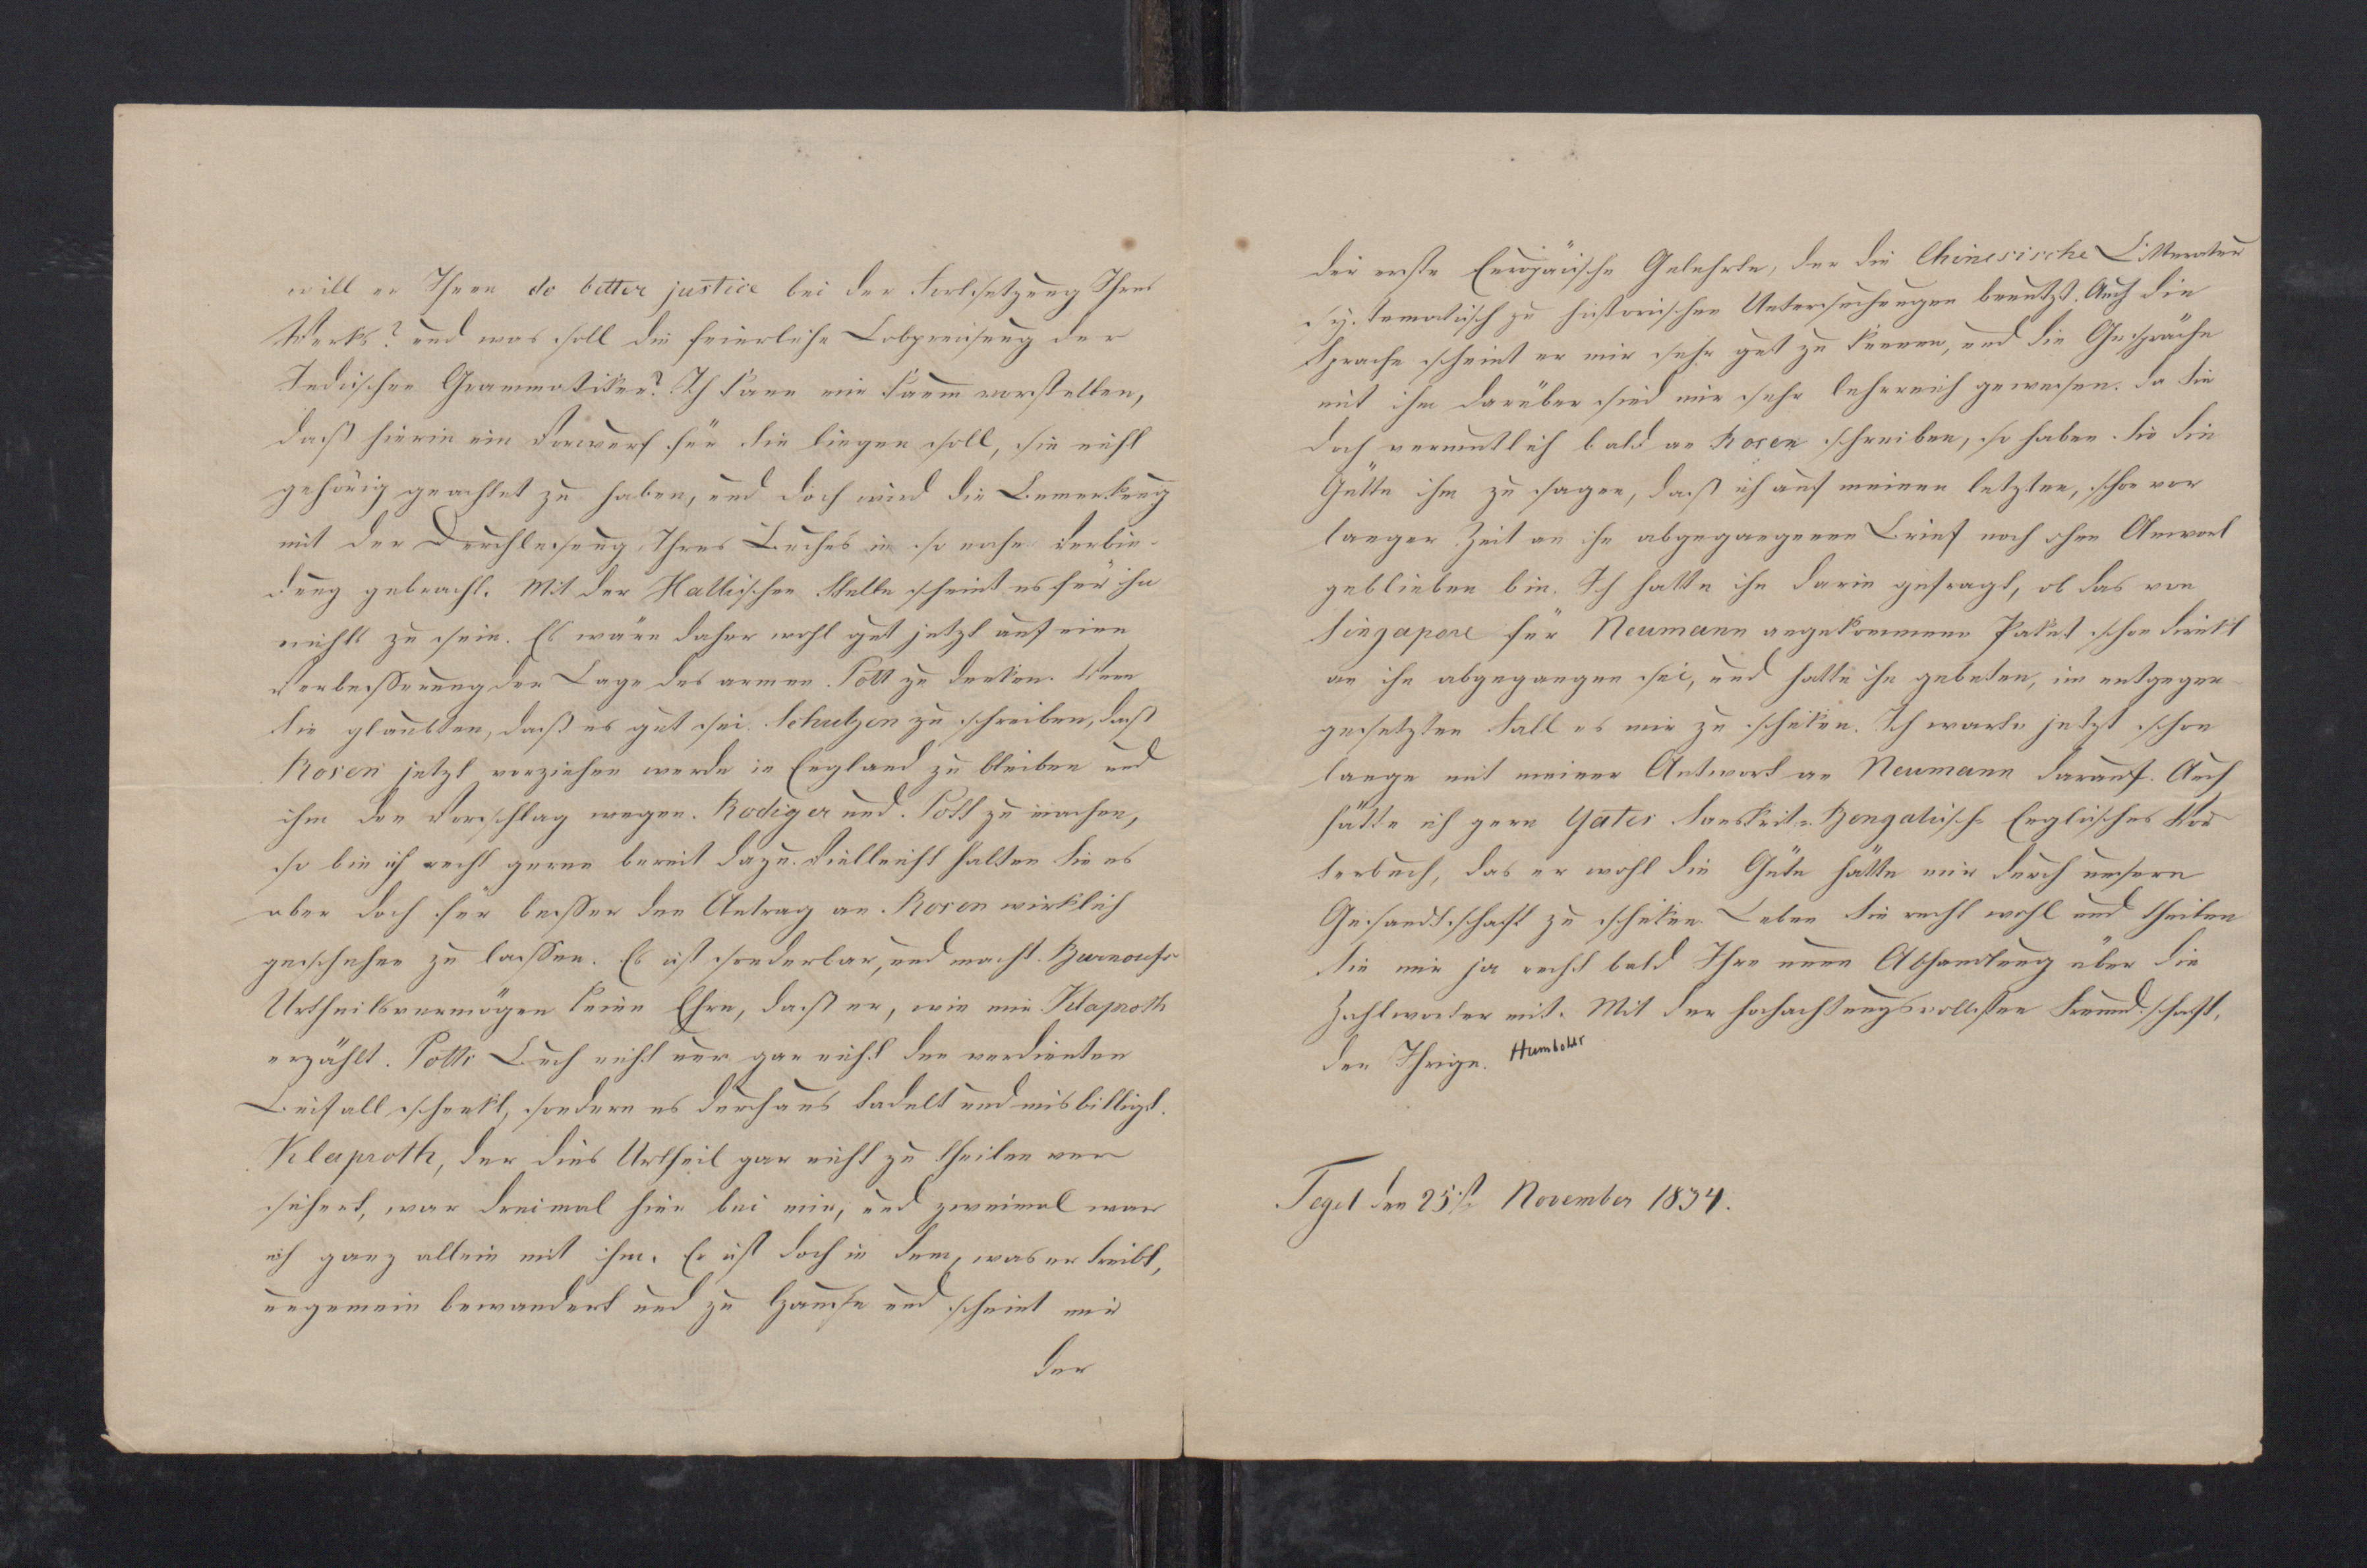 will er Ihnen do better justice bei der Fortsetzung Ihres
Werks? und was soll die feierliche Lobpreisung der
Indischen Grammatiker? Ich kann mir kaum vorstellen,
daß hierin ein Vorwurf für Sie liegen soll, sie nicht
gehörig geachtet zu haben, und doch wird die Bemerkung
mit der Durchlesung Ihres Buches in so nahe Verbin-
dung gebracht. Mit der Hallischen Stelle scheint es für ihn
nichts zu sein. Es wäre daher wohl gut jetzt auf eine
Verbesserung der Lage des armen Pott zu denken. Wenn
Sie glaubten, daß es gut sei Schulzen zu schreiben, daß
Rosen jetzt vorziehen werde in England zu bleiben und
ihm den Vorschlag wegen Rödiger und Pott zu machen,
so bin ich recht gerne bereit dazu. Vielleicht halten Sie es
aber doch für besser den Antrag an Rosen wirklich
geschehen zu lassen. Es ist sonderbar, und macht Burnoufs
Urtheilsvermögen keine Ehre, daß er, wie mir Klaproth
erzählt. Potts Buch nicht nur gar nicht den verdienten
Beifall schenkt, sondern es durchaus tadelt und misbilligt.
Klaproth, der dies Urtheil gar nicht zu theilen ver
sichert, war dreimal hier bei mir, und zweimal war
ich ganz allein mit ihm. Er ist doch in dem, was er treibt,
ungemein bewandert und zu Hause und scheint mir
der
der erste Europäische Gelehrte, der die Chinesische Litteratur
systematisch zu historischen Untersuchungen benutzt. Auch die
Sprache scheint er mir sehr gut zu kennen, und die Gespräche
mit ihm darüber sind mir sehr lehrreich gewesen. Da Sie
doch vermutlich bald an Rosen schreiben, so haben Sie die
Gütte ihm zu sagen, daß ich auf meinen letzten, schon vor
langer Zeit an ihn abgegangenen Brief noch ohne Anwort
geblieben bin. Ich hatte ihn darin gefragt, ob das von
Singapore für Neumann angekommene Paket schon direkt
an ihn abgegangen sei, und hatte ihn gebeten, im entgegen-
gesetzten Fall es mir zu schicken. Ich warte jetzt schon
lange mit meiner Antwort an Neumann darauf. Auch
hätte ich gern Yates Sanskrit-Bengalisch-Englisches Wör
terbuch, das er wohl die Güte hätte mir durch unsere
Gesandtschaft zu schicken Leben Sie recht wohl und theilen
Sie mir ja recht bald Ihre neue Abhandlung über die
Zahlworter mit. Mit der hochachtungsvollsten Freundschaft,
der Ihrige. Humboldt
Tegel den 25st. November 1834.